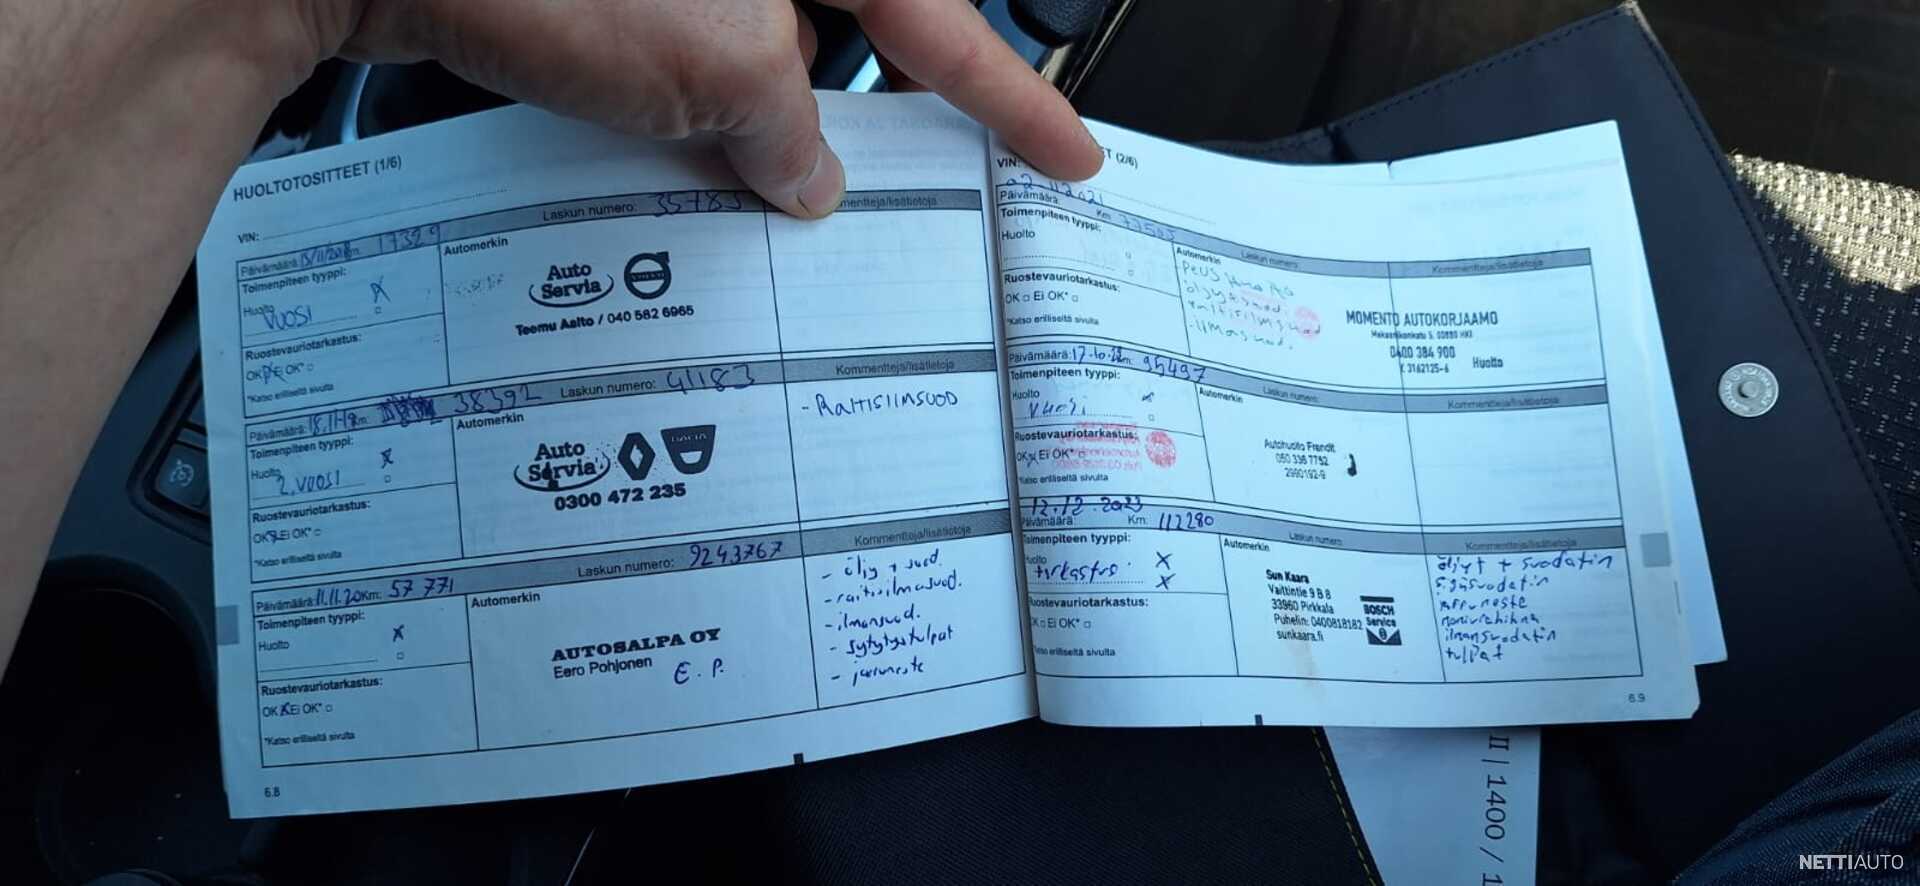 HUOLTOTOSITTEET (1/6)
VIN:
Päivämäärä: 13/11/2018 Km: 17329 Laskun numero: 35783 Kommentteja/lisätietoja
Toimenpiteen tyyppi: Automerkin
Huolto X
VUOSI
Ruostevauriotarkastus:
OK Ei OK*
*Katso erilliseltä sivulta
Auto Servia VOLVO
Teemu Aalto / 040 582 6965
Päivämäärä: 18.11.19 Km: 38392 Laskun numero: 41183 Kommentteja/lisätietoja
Toimenpiteen tyyppi: Automerkin
Huolto X
2. VUOSI
Ruostevauriotarkastus:
OK Ei OK*
*Katso erilliseltä sivulta
Auto Servia DACIA
0300 472 235
- RAITISILMSUOD
Päivämäärä: 11.11.20 Km: 57 771 Laskun numero: 9243767 Kommentteja/lisätietoja
Toimenpiteen tyyppi: Automerkin
Huolto X
Ruostevauriotarkastus:
OK X Ei OK*
*Katso erilliseltä sivulta
AUTOSALPA OY
Eero Pohjonen E. P.
- öljy + suod.
- raitisilmasuod.
- ilmansuod.
- sytytystulpat
- jarruneste
6.8
(2/6)
VIN:
Päivämäärä: 02.11.2021 Km: 77503 Laskun numero: Kommentteja/lisätietoja
Toimenpiteen tyyppi: Automerkin
Huolto
Ruostevauriotarkastus:
OK Ei OK*
*Katso erilliseltä sivulta
öljyt+suod.
raitisilmasuod
ilmansuod.
MOMENTO AUTOKORJAAMO
Mekaanikonkatu 5, 00880 HKI
0400 384 900
Y. 3162125-6 Huolto
Päivämäärä: 17.10.22 Km: 95497 Laskun numero: Kommentteja/lisätietoja
Toimenpiteen tyyppi: Automerkin
Huolto X
Vuosi
Ruostevauriotarkastus:
OK X Ei OK*
*Katso erilliseltä sivulta
Autohuolto Frendit
050 336 7752
2990192-9
12.12.2023
Päivämäärä: Km: 112280 Laskun numero: Kommentteja/lisätietoja
Toimenpiteen tyyppi: Automerkin
Huolto X
tarkastus. X
Ruostevauriotarkastus:
OK Ei OK*
*Katso erilliseltä sivulta
Sun Kaara
Vaittintie 9 B 8
33960 Pirkkala
Puhelin: 0400818182
sunkaara.fi
BOSCH
Service
öljyt + suodatin
sisäsuodatin
jarruneste
moniurahihna
ilmansuodatin
tulpat
6.9
II | 1400 / 1
NETTIAUTO